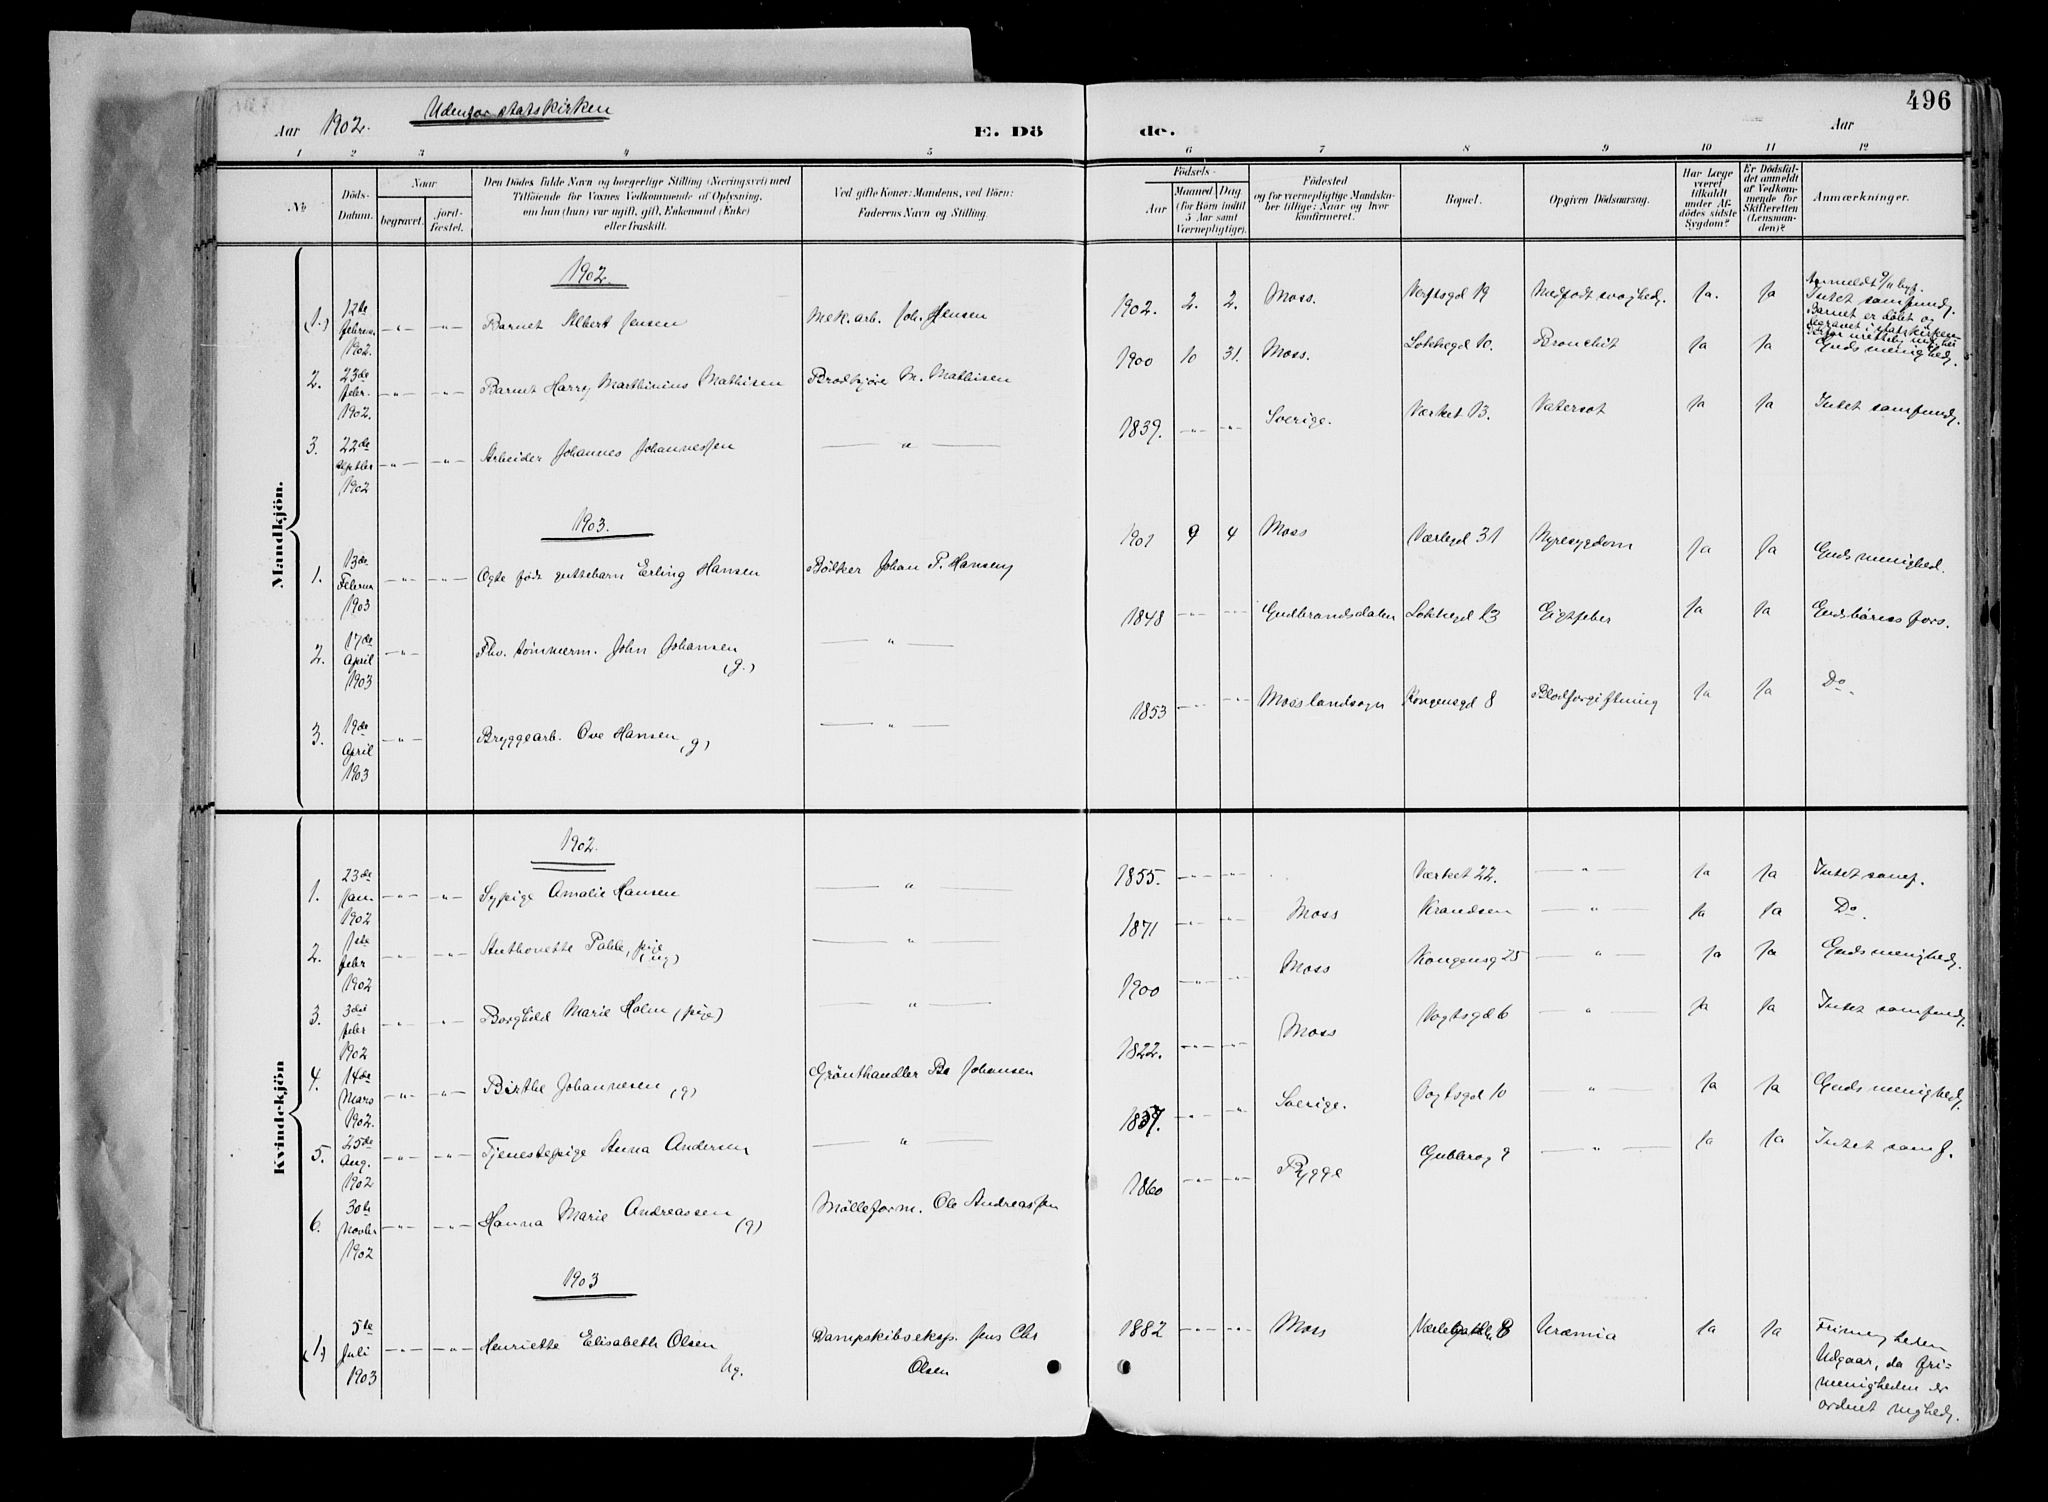 496
Aar 1902. Udenfor statskirken E. Dö de. Aar
1 2 3 4 5 6 7 8 9 10 11 12
№ Döds-Datum. Naar begravet. jordfæstet. Den Dödes fulde Navn og borgerlige Stilling (Næringsvei) med Tilföiende for Voxnes Vedkommende af Oplysning, om han (hun) var ugift, gift, Enkemand (Enke) eller fraskilt. Ved gifte Koner: Mandens, ved Börn: Faderens Navn og Stilling. Födsels- Aar Maaned Dag. (for Börn indtil 5 Aar samt Værnepligtige). Födested og for værnepligtige Mandskaber tillige: Naar og hvor konfirmeret. Bopæl. Opgiven Dödsaarsag. Har Læge været tilkaldt under Afdödes sidste Sygdom? Er Dödsfaldet anmeldt af Vedkommende for Skifteretten (Lensmanden)? Anmærkninger.
Mandkjön.
1902.
(1.) 12te febru. 1902. - " - - " - Barnet Albert Jensen Mek. arb. Joh. Jensen 1902. 2. 2. Moss. Verftsgd 19 Medfødt svaghed. Ja. Ja Anmeldt 9/11 byf. Intet samfund. Barnet er døbt og begravet i statskirken
2. 23de febr. 1902. - " - - " - Barnet Harry Marthinius Mathisen Brødkjøre M. Mathisen 1900 10 31. Moss. Løkkegd 10. Bronchit Ja Ja Guds menighed.
3. 22de septbr 1902 - " - - " - Arbeider Johannes Johannessen — " — 1839. - " - - " - Sverige. Værket 13. Vatersot Ja Ja Intet samfund.
1903.
1. 13de Februar 1903 - " - - " - Ægte født guttebarn Erling Hansen Bødker Johan P. Hansen 1901 9 4 Moss Værlegd 31 Nyresygdom Ja Ja Guds menighed.
2. 17de April 1903 - " - Fhv. tømmerm. John Johansen (g.) — " — 1848 - " - - " - Gudbrandsdalen Løkkegd 13 Gigtfeber Ja Ja Gudsbørns fors.
3. 19de April 1903 - " - Bryggearb. Ove Hansen (g) — " — 1853 - " - - " - Moss landsogn Kongensgd 8 Blodforgiftning Ja Ja Do.
Kvindekjön
1902.
1. 23de Jan. 1902 - " - - " - Sypige Amalie Hansen — " — 1855. - " - - " - Værket 22. - " - Ja Ja Intet samf.
2. 1ste febr 1902 - " - - " - Anthonette Palde, pige (ug) — " — 1871 - " - - " - Moss Krandsen — " — Ja Ja Do.
3. 3die febr 1902 - " - - " - Borghild Marie Holm (pige) — " — 1900 - " - - " - Moss Kongensg 25 - " - Ja Ja Guds menighed.
4. 14de Mars 1902. - " - - " - Birthe Johannesen (g) Grønthandler Be Johansen 1822. - " - - " - Moss Vogtsgd 6 — " — Ja Ja Intet samfund.
5. 25de Aug. 1902 - " - - " - Tjenestepige Anna Andersen — " — 1857. - " - " Sverige. Vogtsgd 10 — " — Ja Ja Guds menighed.
6. 30te Novbr 1902 - " - - " - Hanna Marie Andreassen (g) Mølleform. Ole Andreassen 1860 - " - - " - Rygge Gubberog 9 — " — Ja Ja Intet samf.
1903
(1.) 5te Juli 1903 - " - - " - Henriette Elisabeth Olsen Ug. Dampskibseksp. Jens Chr Olsen 1882 - " - - " - Moss Værlegd. 8 Uræmia Ja Ja Frimenigheden Udgaar, da frimenigheden er ordnet mghed.